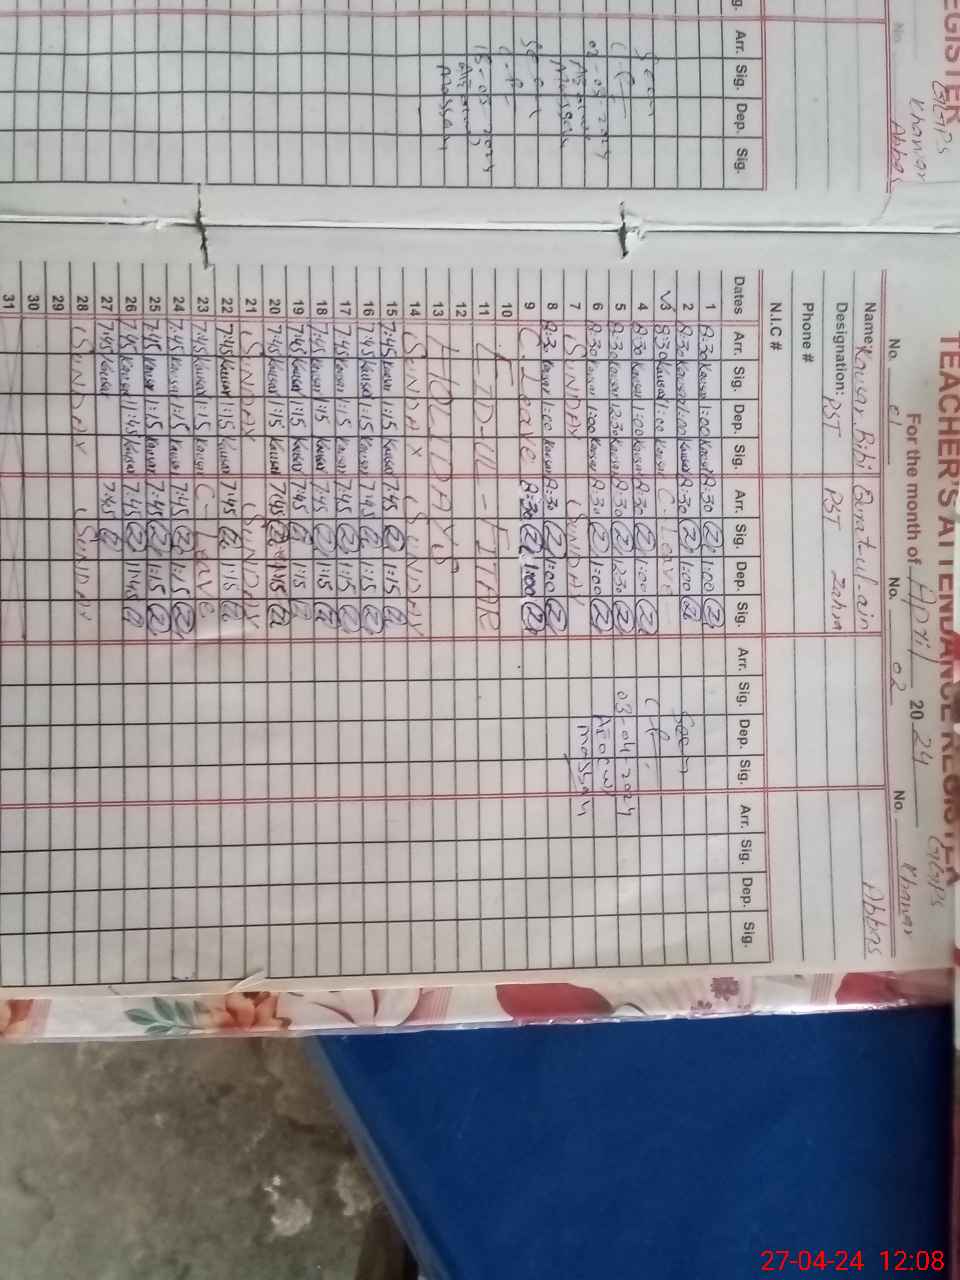 TEACHER'S ATTENDANCE REGISTER
GGPS
For the month of April 2024
Khawar
Abbas
No. 01 No. 02 No.
Name: Kausar Bibi Quratulain
Designation: PST PST Zahra
Phone #
N.I.C #
Dates Arr. Sig. Dep. Sig. Arr. Sig. Dep. Sig. Arr. Sig. Dep. Sig. Arr. Sig. Dep. Sig.
1 8:30 Kausar 1:00 Kausar 8:30 1:00
2 8:30 Kausar 1:00 Kausar 8:30 1:00 Seen
3 8:30 Kausar 1:00 Kausar C-Leave
4 8:30 Kausar 1:00 Kausar 8:30 1:00
5 8:30 Kausar 12:30 Kausar 8:30 12:30 03-04-2024
6 8:30 Kausar 1:00 Kausar 8:30 1:00
7 SUNDAY SUNDAY
8 8:30 Kausar 1:00 Kausar 8:30 1:00
9 C-Leave 8:30 1:00
10
11 EID-UL-FITAR
12
13 HOLIDAYS
14 SUNDAY SUNDAY
15 7:45 Kausar 1:15 Kausar 7:45 1:15
16 7:45 Kausar 1:15 Kausar 7:45 1:15
17 7:45 Kausar 1:15 Kausar 7:45 1:15
18 7:45 Kausar 1:15 Kausar 7:45 1:15
19 7:45 Kausar 1:15 Kausar 7:45 1:15
20 7:45 Kausar 1:15 Kausar 7:45 1:15
21 SUNDAY SUNDAY
22 7:45 Kausar 1:15 Kausar 7:45 1:15
23 7:45 Kausar 1:15 Kausar C-Leave
24 7:45 Kausar 1:15 Kausar 7:45 1:15
25 7:45 Kausar 1:15 Kausar 7:45 1:15
26 7:45 Kausar 11:45 Kausar 7:45 11:45
27 7:45 Kausar 7:45
28 SUNDAY SUNDAY
29
30
31
EGISTER
GGPS
Khawar
Abbas
No.
Arr. Sig. Dep. Sig.
Seen
02-03-2024
Seen
15-03-2024
27-04-24 12:08